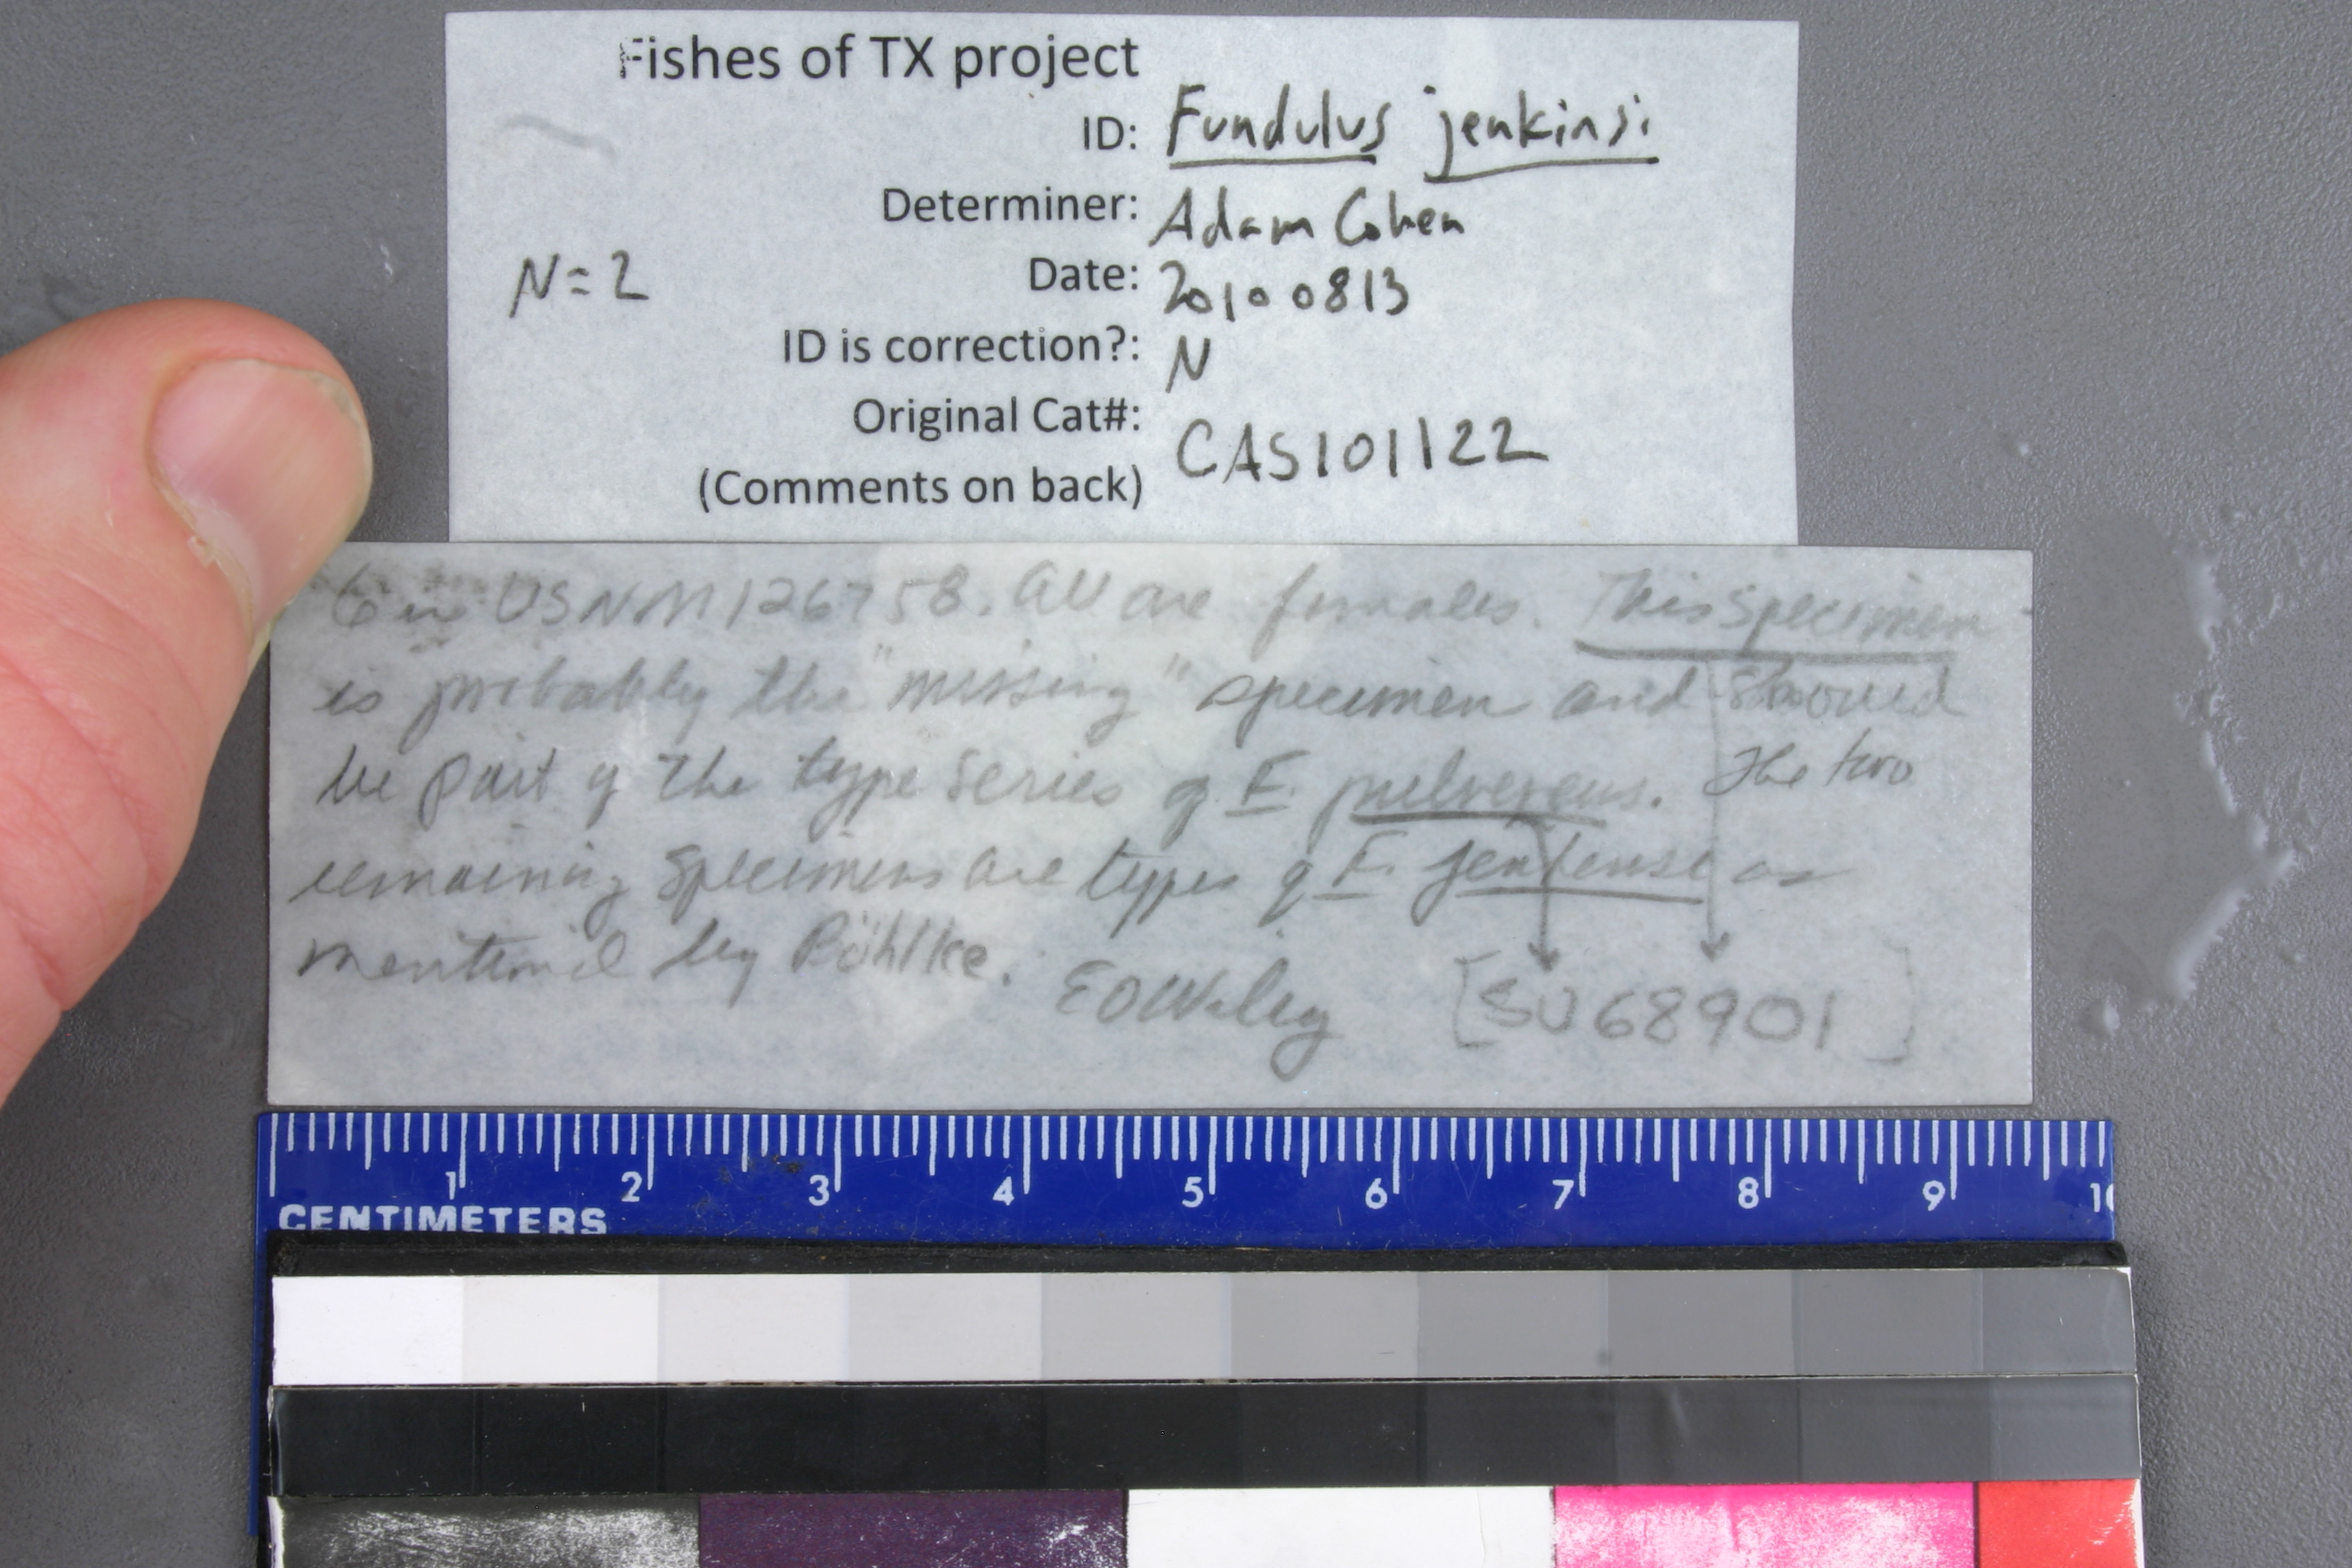 Fishes of TX project
ID: Fundulus jenkinsi
Determiner: Adam Cohen
N=2 Date: 20100813
ID is correction?: N
Original Cat#: CAS101122
(Comments on back)
6 in USNM 126758. All are females. This specimen
is probably the "missing" specimen and should
be part of the type series of F. pulvereus. The two
remaining specimens are types of F. jenkinsi as
mentioned by Böhlke. EOWiley [SU68901]
1 2 3 4 5 6 7 8 9 10
CENTIMETERS